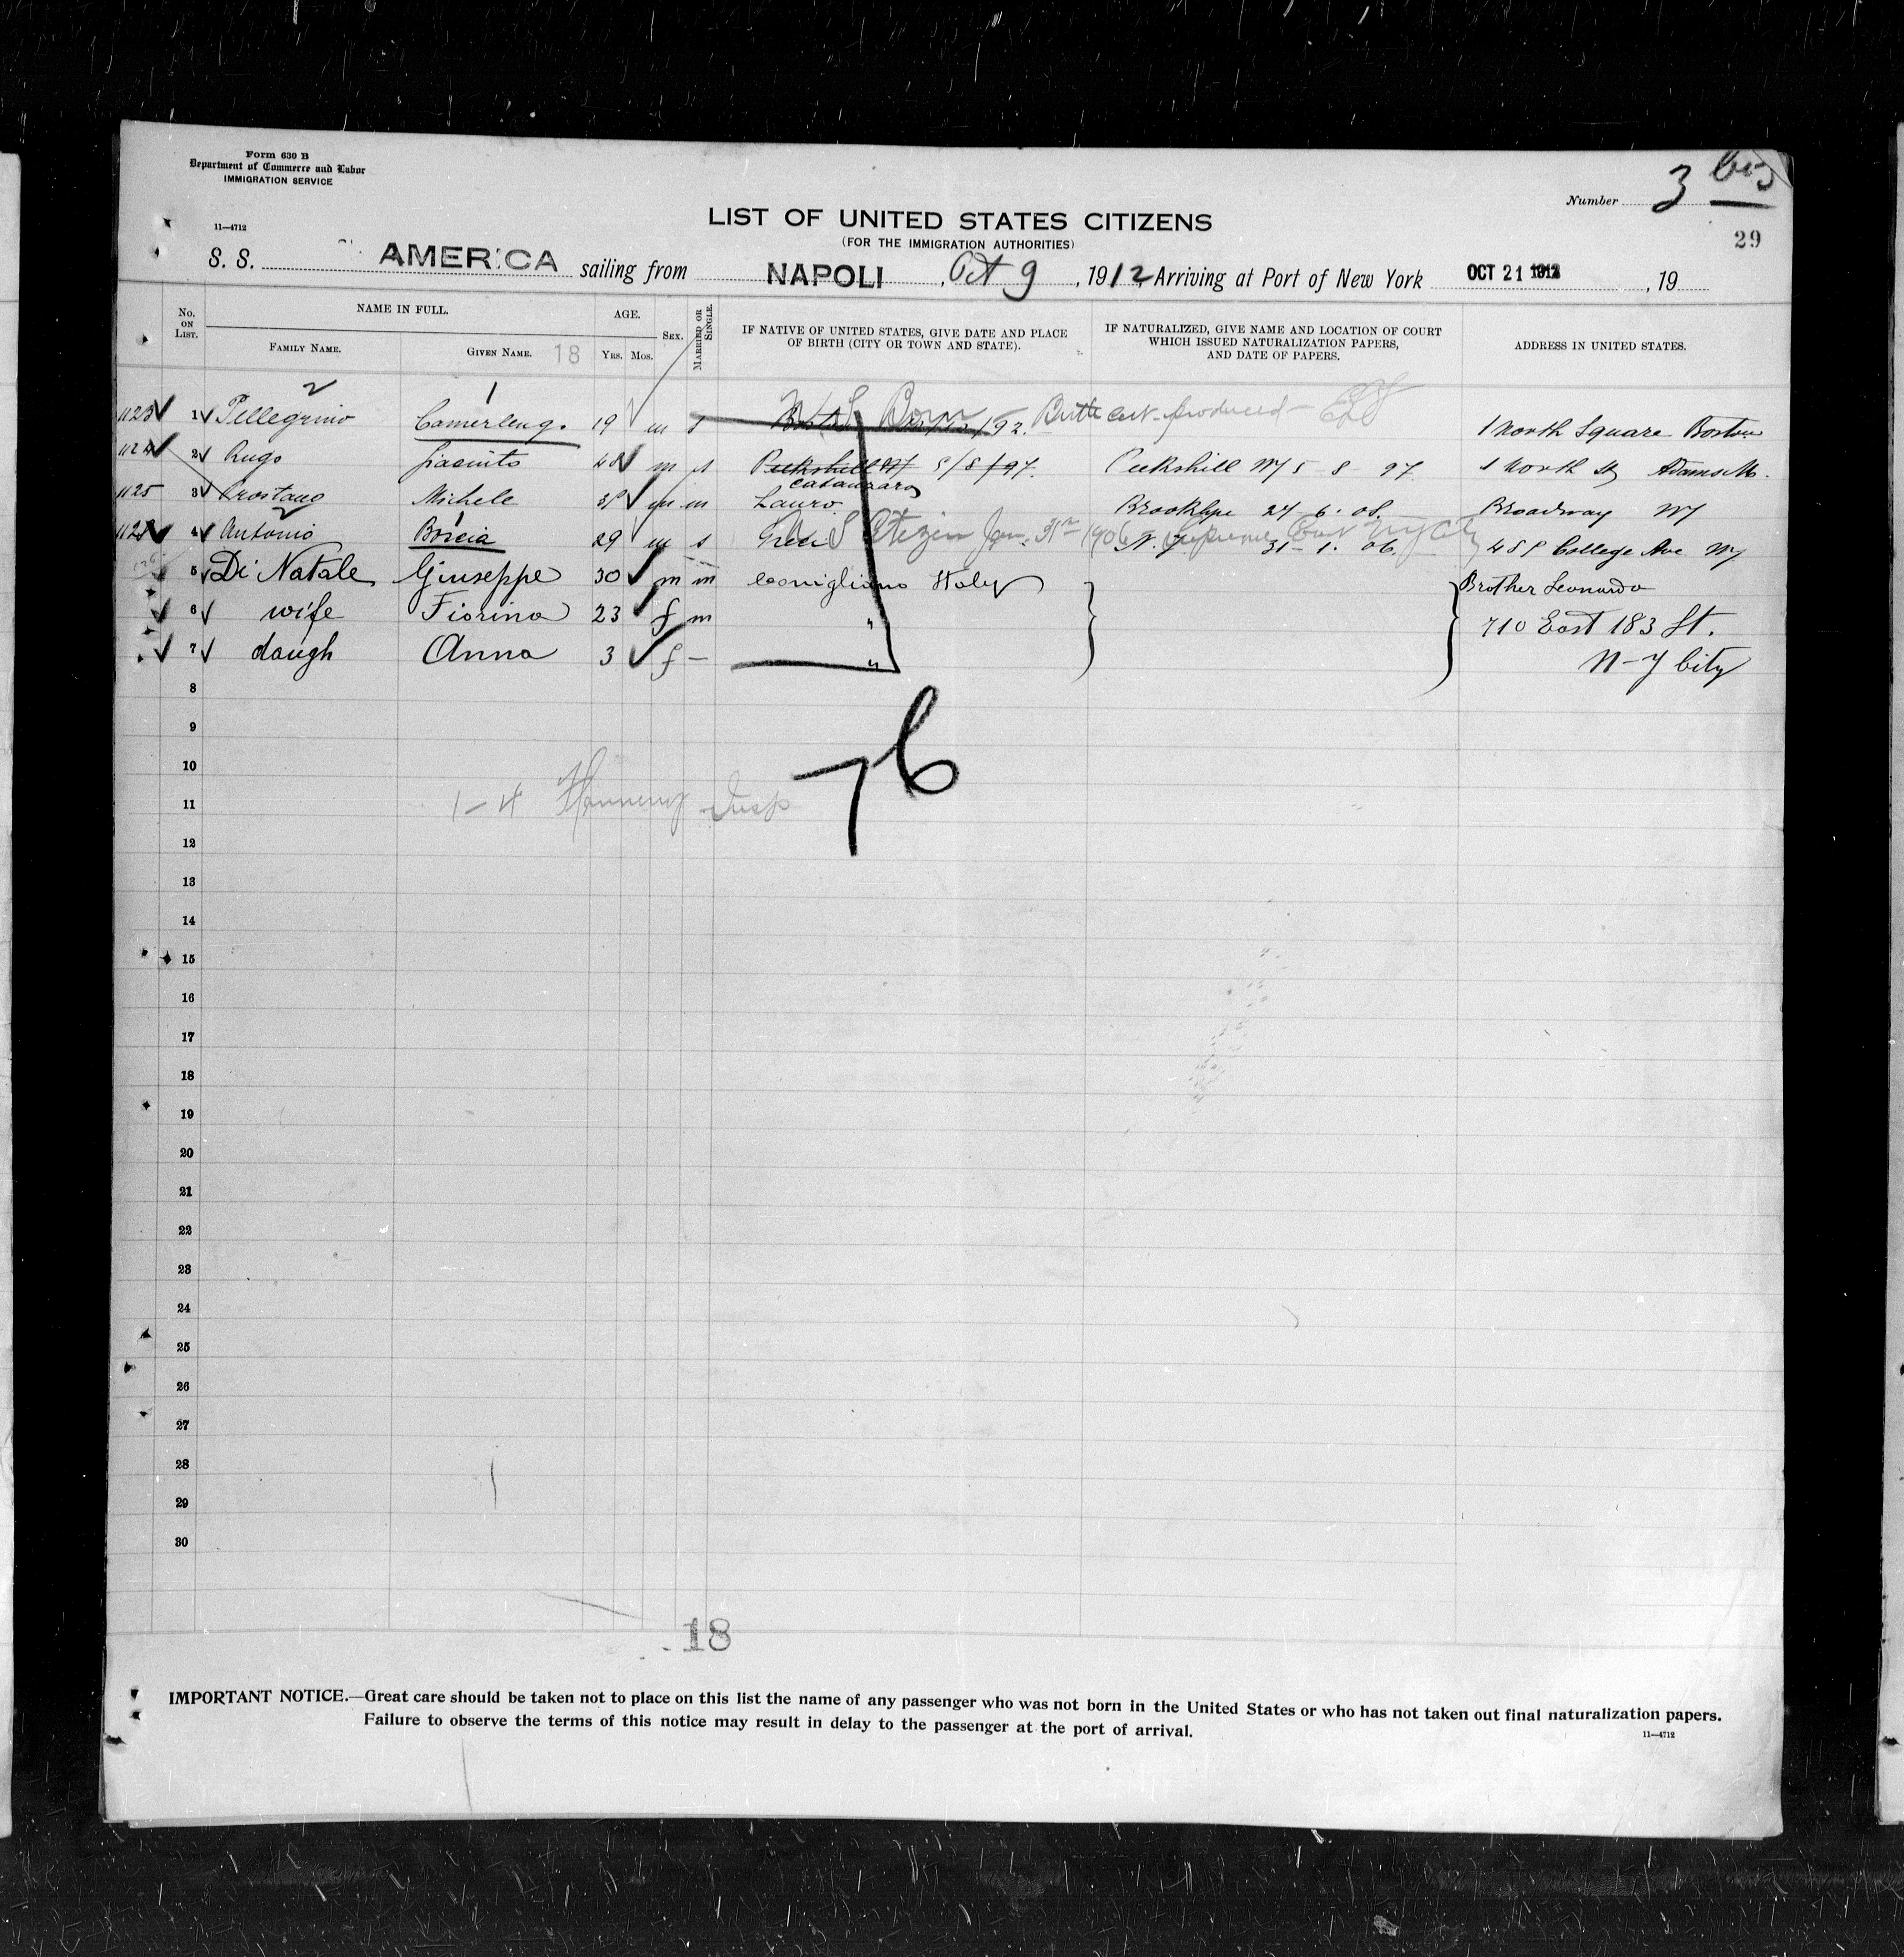 Form 630 B
Department of Commerce and Labor
IMMIGRATION SERVICE
11—4712
Number 3 bis
29
LIST OF UNITED STATES CITIZENS
(FOR THE IMMIGRATION AUTHORITIES)
S. S. AMERICA sailing from NAPOLI, Oct 9, 1912, Arriving at Port of New York OCT 21 1912, 19
No. ON LIST.
NAME IN FULL.
FAMILY NAME.
GIVEN NAME. 18
AGE.
YRS. MOS.
SEX.
MARRIED OR SINGLE.
IF NATIVE OF UNITED STATES, GIVE DATE AND PLACE OF BIRTH (CITY OR TOWN AND STATE).
IF NATURALIZED, GIVE NAME AND LOCATION OF COURT WHICH ISSUED NATURALIZATION PAPERS, AND DATE OF PAPERS.
ADDRESS IN UNITED STATES.
2 1
1123 1 Pellegrino Camerleng. 19 m s Born Birth cert. produced 1 North Square Boston
1124 2 Giacinto 48 m s Peekshill NY 5/8/97. Peekshill NY 5-8-97 1 North St Adams M.
1125 3 Michele m m Catanzaro Lauro Brooklyn 24-6-08. Broadway NY
2 1
4 Antonio Borcia 29 m s U S Citizen Jan. 31st 1906 Supreme Court NY City N.Y. 31-1-06. College Ave NY
5 Di Natale Giuseppe 30 m m Conigliano Italy Brother Leonardo
6 wife Fiorina 23 f m " 710 East 183 St.
7 daugh Anna 3 f — " N-Y City
8
9
76
10
11 1-4 Insp
12
13
14
15
16
17
18
19
20
21
22
23
24
25
26
27
28
29
30
18
IMPORTANT NOTICE.—Great care should be taken not to place on this list the name of any passenger who was not born in the United States or who has not taken out final naturalization papers.
Failure to observe the terms of this notice may result in delay to the passenger at the port of arrival.
11—4712